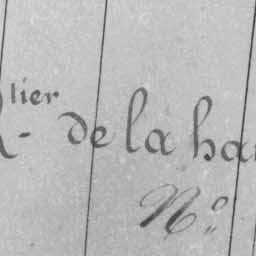 lier
- de la ha
Nº